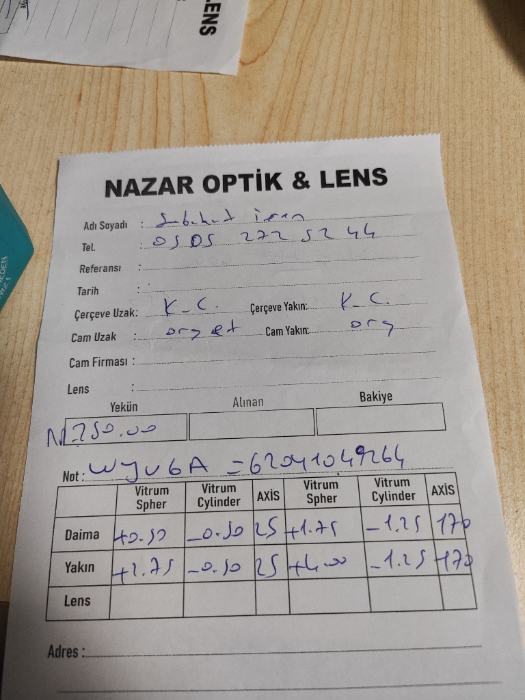 LENS
NAZAR OPTİK & LENS
Adı Soyadı :
Tel. : 0505 272 52 44
Referansı :
Tarih :
Çerçeve Uzak: K-C. Çerçeve Yakın: K-C.
Cam Uzak : org et Cam Yakın: org
Cam Firması :
Lens :
Yekün Alınan Bakiye
N 250.00
Not : WYU6A = 62041049264
Vitrum Spher Vitrum Cylinder AXİS Vitrum Spher Vitrum Cylinder AXİS
Daima +0.50 -0.50 25 +1.75 -1.25 170
Yakın +2.75 -0.50 25 +4.00 -1.25 170
Lens
Adres :